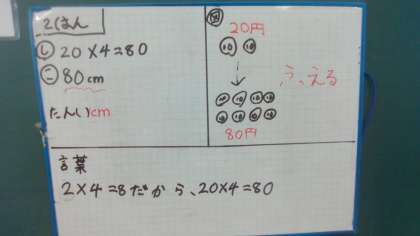 2はん
し 20×4=80
こ 80cm
たんいcm
図
20円
10 10
ふえる
10 10 10 10
10 10 10 10
80円
言葉
2×4=8だから、20×4=80